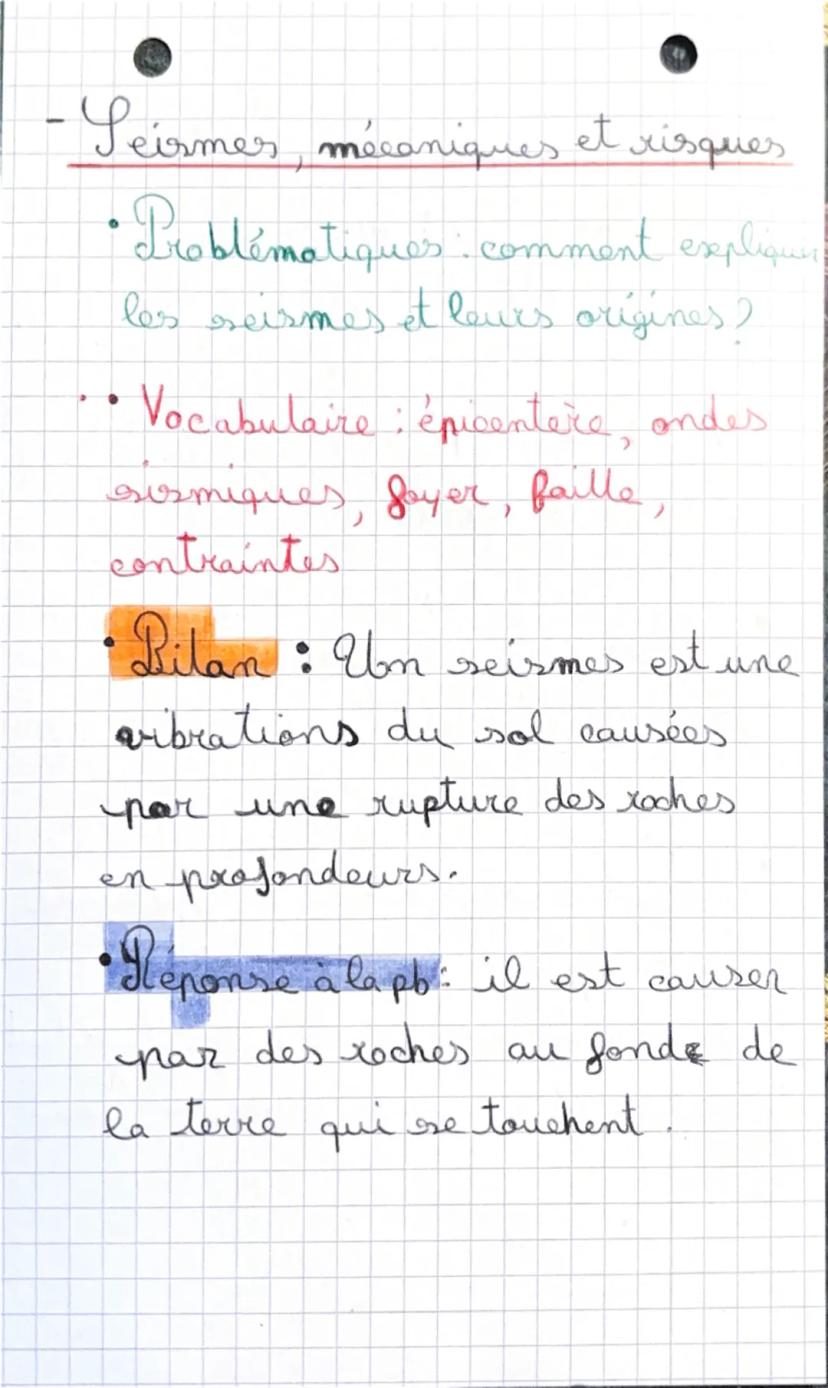 - Seismes, mécaniques et risques
• Problématiques : comment expliquer
les seismes et leurs origines ?
• • Vocabulaire : épicentère, ondes
sismiques, foyer, faille,
contraintes
• Bilan : Un seismes est une
vibrations du sol causées
par une rupture des roches
en profondeurs.
• Réponse à la pb : il est causer
par des roches au fond de
la terre qui se touchent.